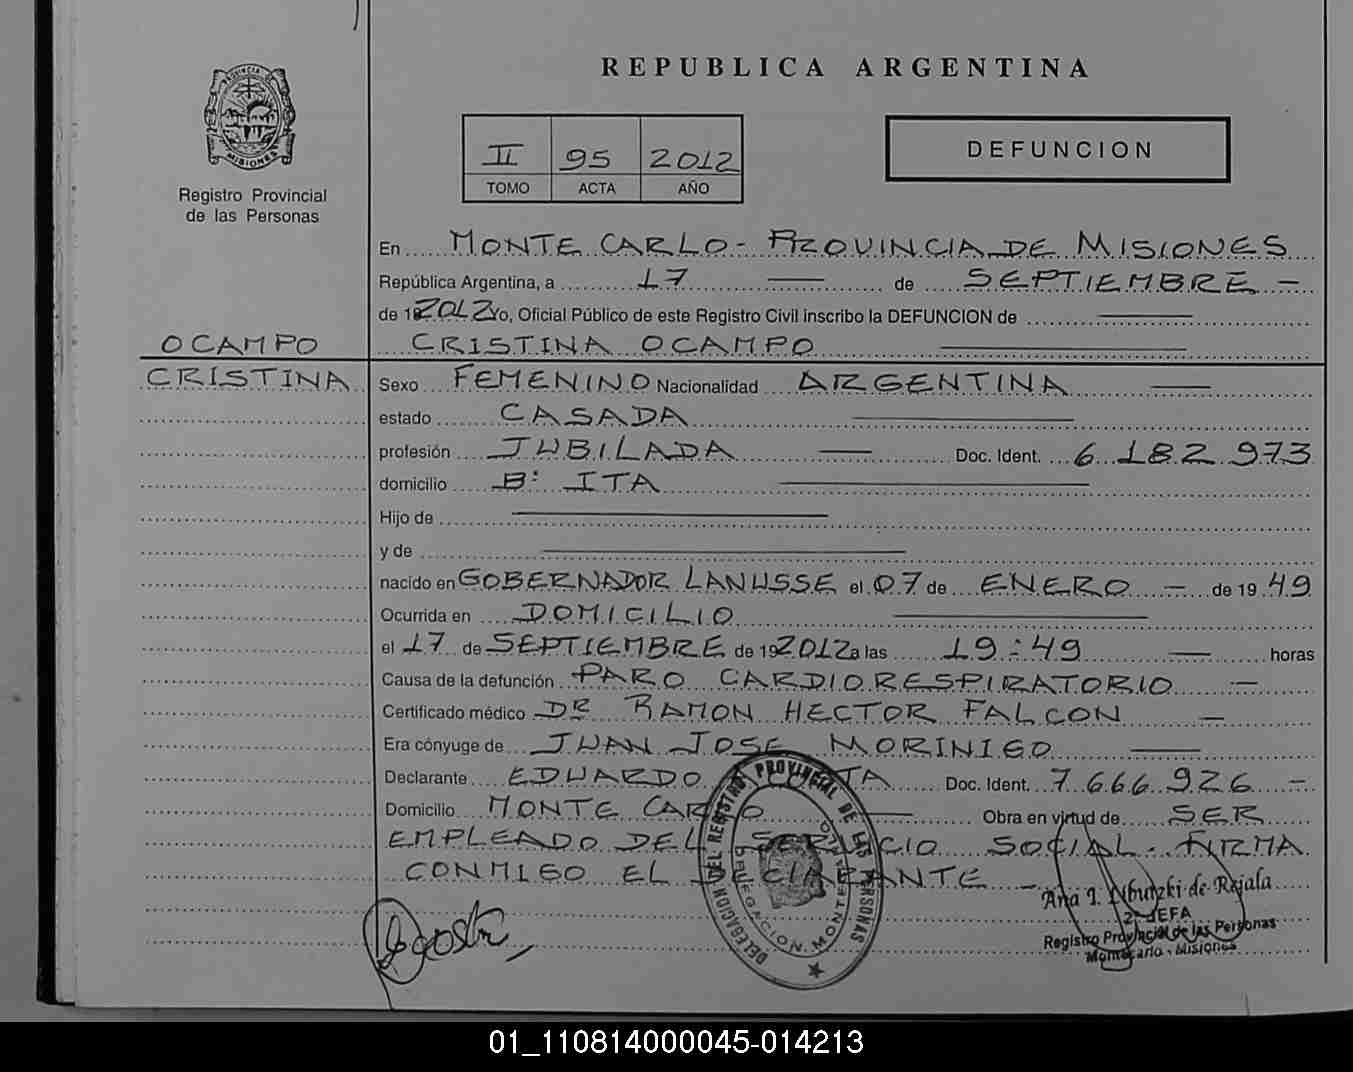 REPUBLICA ARGENTINA
PROVINCIA DE MISIONES
Registro Provincial
de las Personas
II 95 2012
TOMO ACTA AÑO
DEFUNCION
En MONTE CARLO - PROVINCIA DE MISIONES
República Argentina, a 17 — de SEPTIEMBRE -
de 2012 Yo, Oficial Público de este Registro Civil inscribo la DEFUNCION de —
OCAMPO
CRISTINA
CRISTINA OCAMPO —
Sexo FEMENINO Nacionalidad ARGENTINA —
estado CASADA —
profesión JUBILADA — Doc. Ident. 6 182 973
domicilio Bº ITA —
Hijo de —
y de —
nacido en GOBERNADOR LANUSSE el 07 de ENERO - de 19 49
Ocurrida en DOMICILIO —
el 17 de SEPTIEMBRE de 192012 a las 19:49 — horas
Causa de la defunción PARO CARDIORESPIRATORIO —
Certificado médico DR RAMON HECTOR FALCON —
Era cónyuge de JUAN JOSE MORINIGO —
Declarante EDUARDO Doc. Ident. 7 666 926 -
Domicilio MONTE CARLO — Obra en virtud de SER
EMPLEADO DEL SERVICIO SOCIAL - FIRMA
CONMIGO EL DECLARANTE -
DELEGACION DEL REGISTRO PROVINCIAL DE LAS PERSONAS
DELEGACION MONTECARLO
Ana I. de Rejala
2º JEFA
Registro Provincial de las Personas
Montecarlo - Misiones
01_110814000045-014213